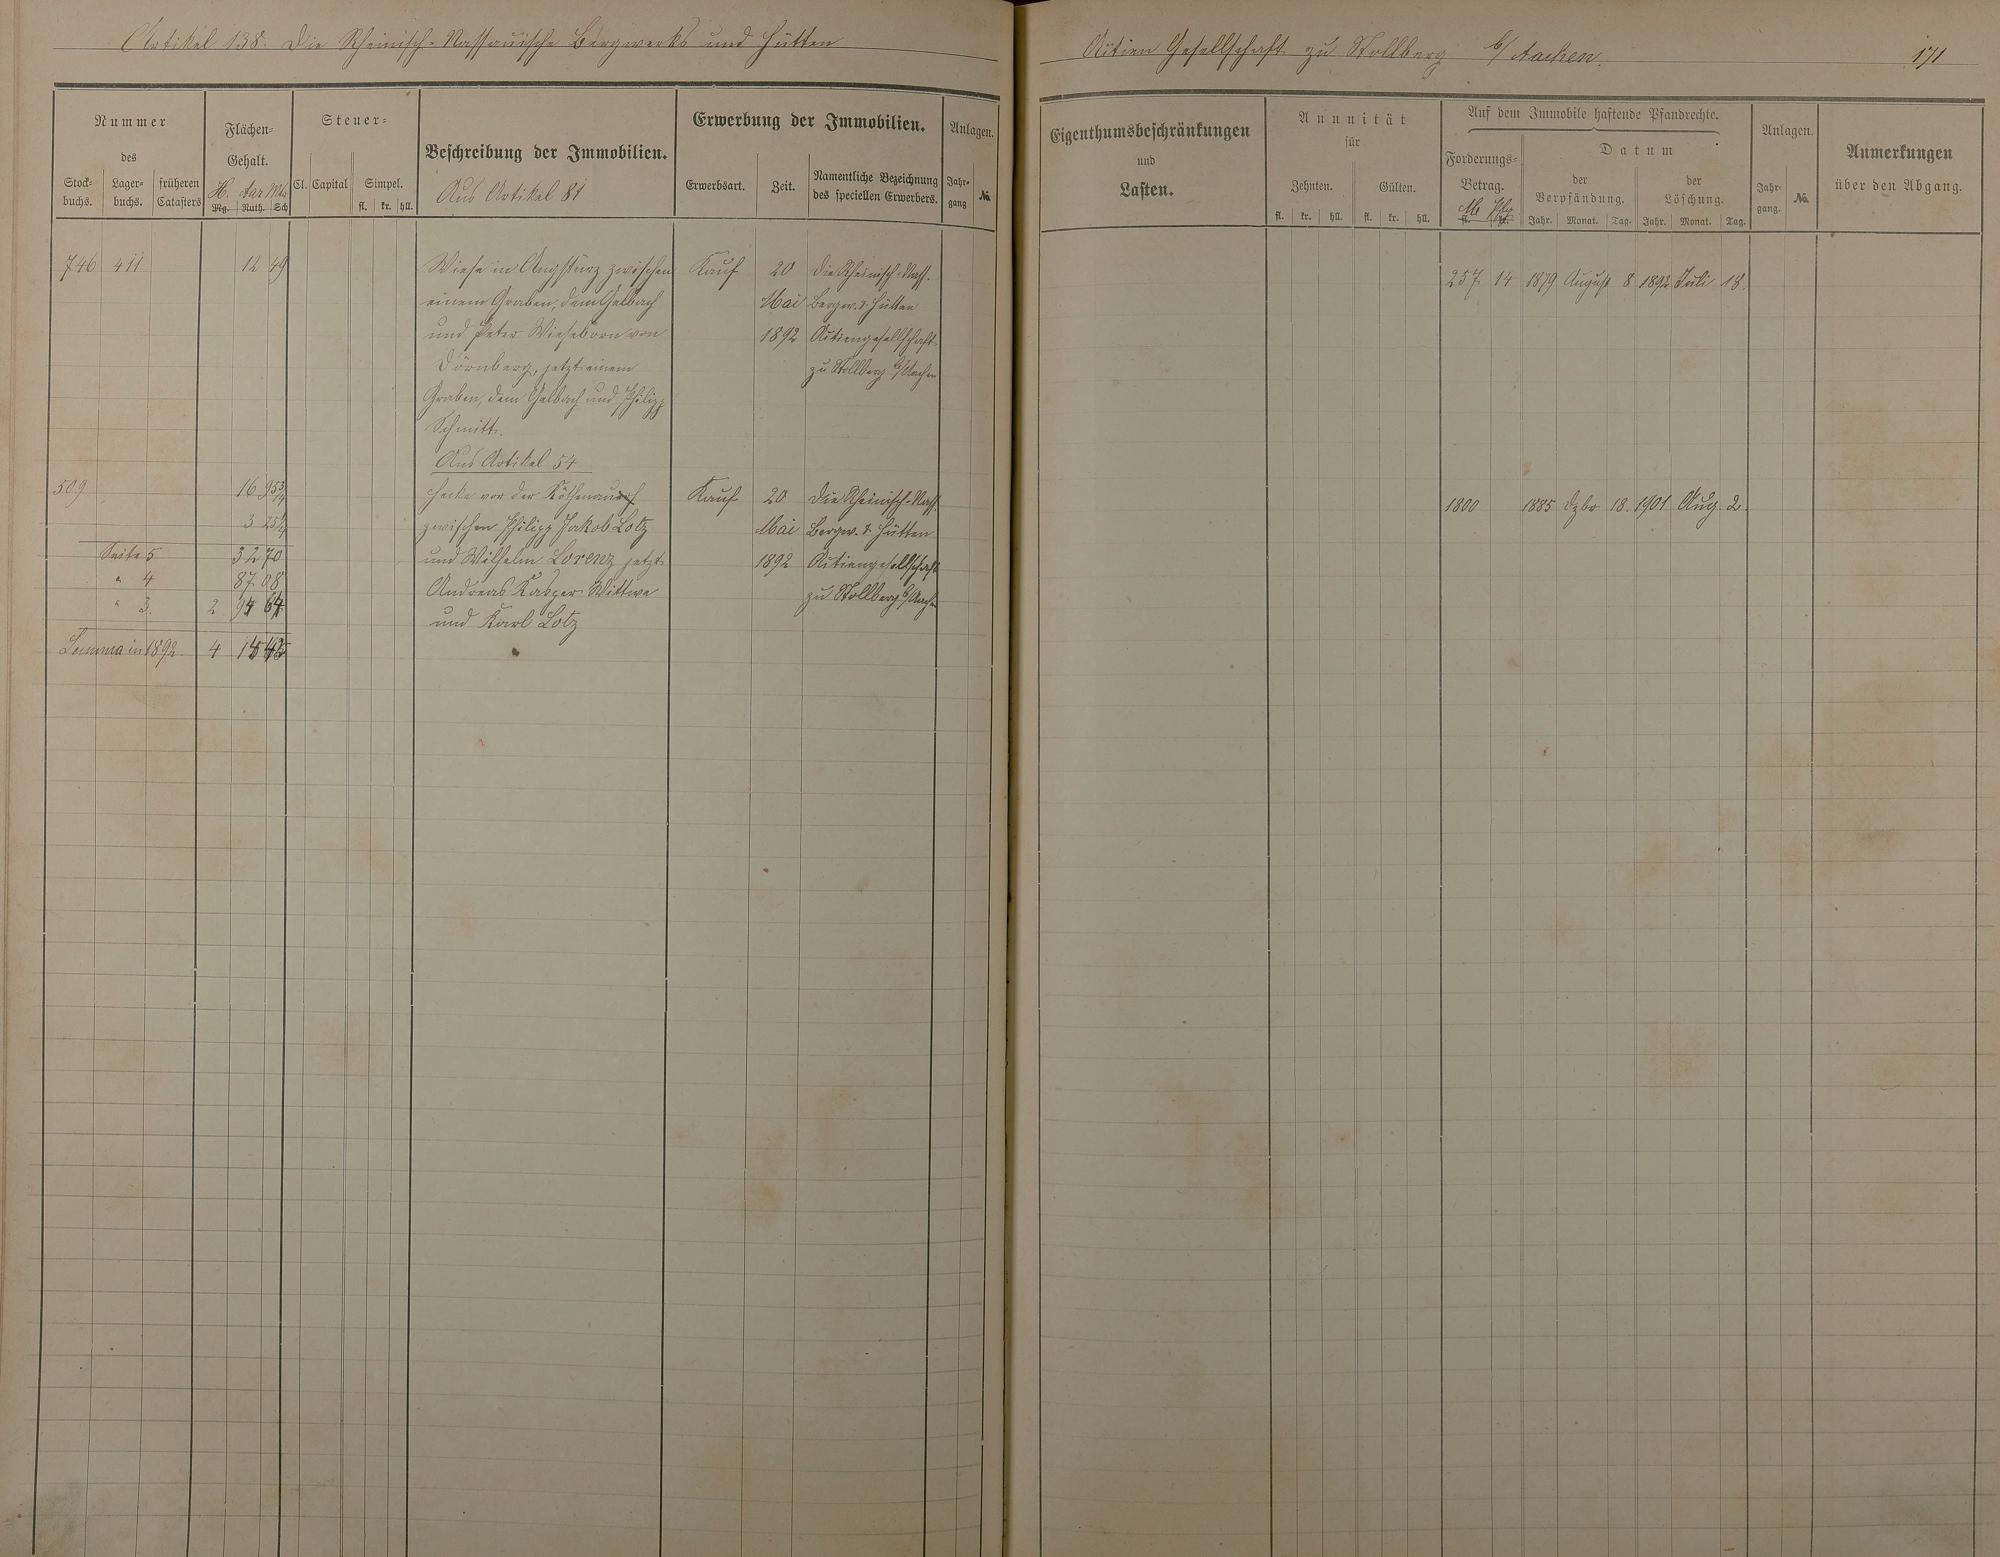 Artikel 138. Die Rheinisch-Nassauische Bergwerks und Hütten
Actien Gesellschaft zu Stollberg b/Aachen.
171
Nummer
des
Stock-
buchs.
Lager-
buchs.
früheren
Catasters
Flächen-
Gehalt.
H. Aar Mtr
Mg. Ruth. Sch
Steuer-
Cl. Capital Simpel.
fl. kr. hll.
Beschreibung der Immobilien.
Aus Artikel 81
Erwerbung der Immobilien.
Erwerbsart. Zeit.
Namentliche Bezeichnung
des speciellen Erwerbers.
Anlagen.
Jahr-
gang
No.
Eigenthumsbeschränkungen
und
Lasten.
Annuität
für
Zehnten. Gülten.
fl. kr. hll. fl. kr. hll.
Auf dem Immobile haftende Pfandrechte.
Forderungs-
Betrag.
M Pfg
Datum
der
Verpfändung.
Jahr. Monat. Tag.
der
Löschung.
Jahr. Monat. Tag.
Anlagen.
Jahr-
gang.
No.
Anmerkungen
über den Abgang.
746 411 12 49 Wiese in Angstürz zwischen Kauf 20 Die Rheinisch-Nass. 257 14 1879 August 8 1892 Juli 18.
einem Graben, dem Gelbach Mai Bergw. & Hütten
und Peter Wieseborn von 1892 Actiengesellschaft
Dörnberg, jetzt einem zu Stollberg b/Aachen
Graben, dem Gelbach und Philipp
Schmitt.
Aus Artikel 54
509 16 95 3/4 Hecke vor der Köthenau Kauf 20 Die Rheinisch-Nass. 1800 1885 Dzbr 18. 1901 Aug. 2.
3 25 1/4 zwischen Philipp Jakob Lotz Mai Bergw. & Hütten
Seite 5 32 70 und Wilhelm Lorenz jetzt 1892 Actiengesellschaft
" 4 87 08 Andreas Kasper Wittwe zu Stollberg b/Aachen
" 3. 2 94 64 und Karl Lotz
Summa in 1892. 4